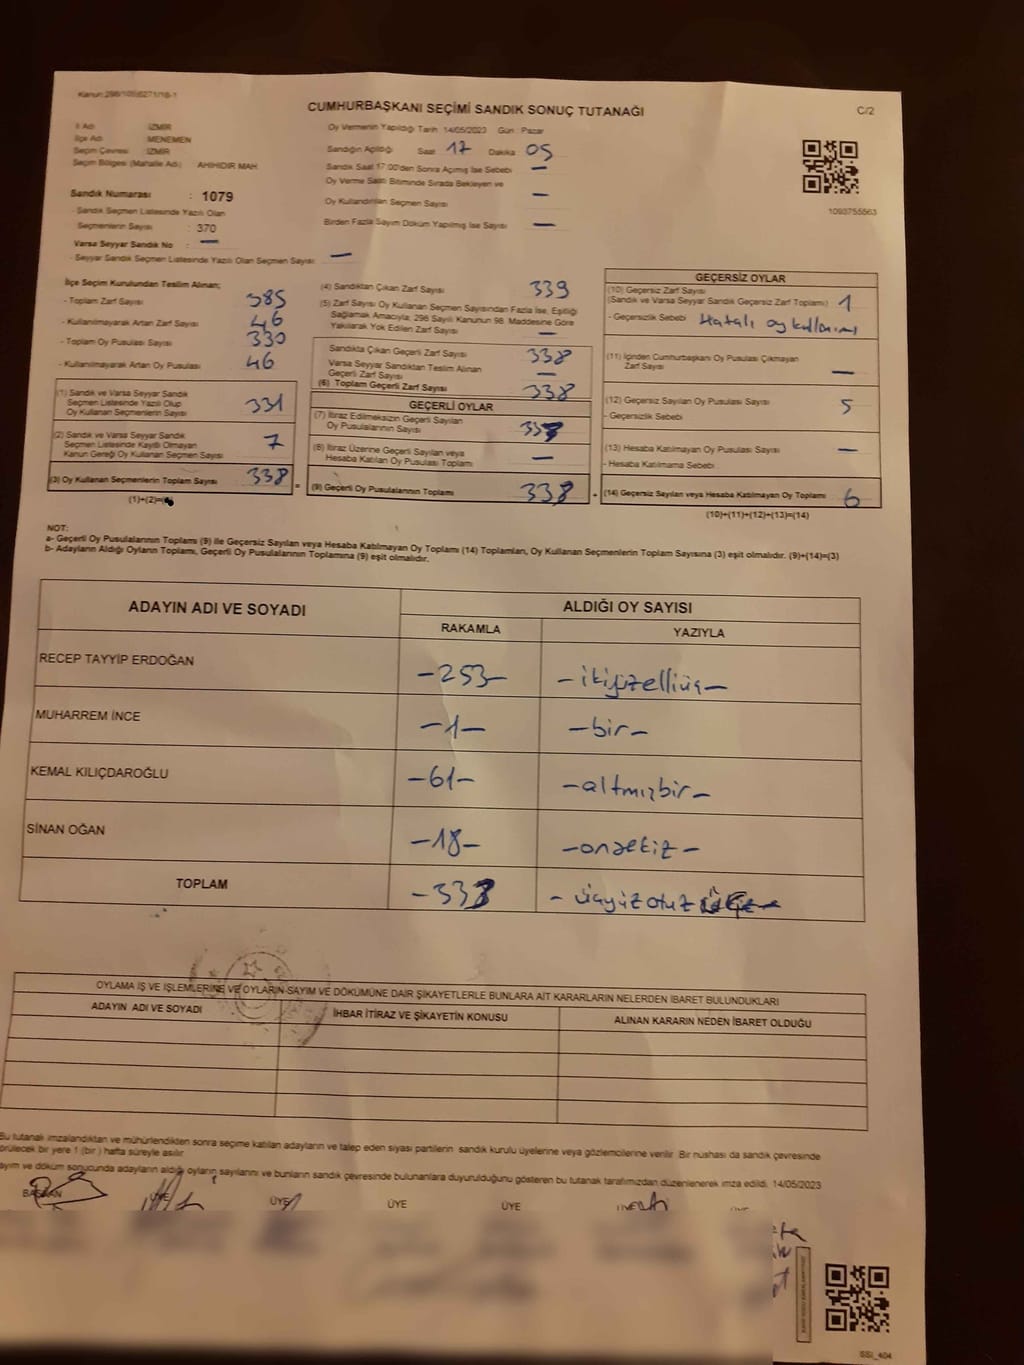 Kanun:298/105,6271/18-1
CUMHURBAŞKANI SEÇİMİ SANDIK SONUÇ TUTANAĞI
C/2
İl Adı : İZMİR
İlçe Adı : MENEMEN
Seçim Çevresi : İZMİR
Seçim Bölgesi (Mahalle Adı) : AHIHIDIR MAH
Sandık Numarası : 1079
- Sandık Seçmen Listesinde Yazılı Olan
Seçmenlerin Sayısı : 370
Varsa Seyyar Sandık No : —
- Seyyar Sandık Seçmen Listesinde Yazılı Olan Seçmen Sayısı: —
Oy Vermenin Yapıldığı Tarih 14/05/2023 Gün Pazar
Sandığın Açıldığı Saat 17 Dakika 05
Sandık Saat 17:00'den Sonra Açılmış İse Sebebi —
Oy Verme Saati Bitiminde Sırada Bekleyen ve
Oy Kullandırılan Seçmen Sayısı —
Birden Fazla Sayım Döküm Yapılmış İse Sayısı —
1093755563
İlçe Seçim Kurulundan Teslim Alınan;
- Toplam Zarf Sayısı 385
- Kullanılmayarak Artan Zarf Sayısı 46
- Toplam Oy Pusulası Sayısı 330
- Kullanılmayarak Artan Oy Pusulası 46
(1) Sandık ve Varsa Seyyar Sandık
Seçmen Listesinde Yazılı Olup
Oy Kullanan Seçmenlerin Sayısı 331
(2) Sandık ve Varsa Seyyar Sandık
Seçmen Listesinde Kayıtlı Olmayan
Kanun Gereği Oy Kullanan Seçmen Sayısı 7
(3) Oy Kullanan Seçmenlerin Toplam Sayısı 338
(1)+(2)=
(4) Sandıktan Çıkan Zarf Sayısı 339
(5) Zarf Sayısı Oy Kullanan Seçmen Sayısından Fazla İse, Eşitliği
Sağlamak Amacıyla, 298 Sayılı Kanunun 98. Maddesine Göre
Yakılarak Yok Edilen Zarf Sayısı —
Sandıkta Çıkan Geçerli Zarf Sayısı 338
Varsa Seyyar Sandıktan Teslim Alınan
Geçerli Zarf Sayısı —
(6) Toplam Geçerli Zarf Sayısı 338
GEÇERLİ OYLAR
(7) İtiraz Edilmeksizin Geçerli Sayılan
Oy Pusulalarının Sayısı
(8) İtiraz Üzerine Geçerli Sayılan veya
Hesaba Katılan Oy Pusulası Toplamı —
(9) Geçerli Oy Pusulalarının Toplamı 338
GEÇERSİZ OYLAR
(10) Geçersiz Zarf Sayısı
(Sandık ve Varsa Seyyar Sandık Geçersiz Zarf Toplamı) 1
- Geçersizlik Sebebi Hatalı oy kullanımı
(11) İçinden Cumhurbaşkanı Oy Pusulası Çıkmayan
Zarf Sayısı —
(12) Geçersiz Sayılan Oy Pusulası Sayısı 5
- Geçersizlik Sebebi
(13) Hesaba Katılmayan Oy Pusulası Sayısı —
- Hesaba Katılmama Sebebi
(14) Geçersiz Sayılan veya Hesaba Katılmayan Oy Toplamı 6
(10)+(11)+(12)+(13)=(14)
NOT:
a- Geçerli Oy Pusulalarının Toplamı (9) ile Geçersiz Sayılan veya Hesaba Katılmayan Oy Toplamı (14) Toplamları, Oy Kullanan Seçmenlerin Toplam Sayısına (3) eşit olmalıdır. (9)+(14)=(3)
b- Adayların Aldığı Oyların Toplamı, Geçerli Oy Pusulalarının Toplamına (9) eşit olmalıdır.
ADAYIN ADI VE SOYADI ALDIĞI OY SAYISI
RAKAMLA YAZIYLA
RECEP TAYYİP ERDOĞAN -253- -ikiyüzelliüç-
MUHARREM İNCE -1- -bir-
KEMAL KILIÇDAROĞLU -61- -altmışbir-
SİNAN OĞAN -18- -onsekiz-
TOPLAM -333 - üçyüzotuz üç-
OYLAMA İŞ VE İŞLEMLERİNE VE OYLARIN SAYIM VE DÖKÜMÜNE DAİR ŞİKAYETLERLE BUNLARA AİT KARARLARIN NELERDEN İBARET BULUNDUKLARI
ADAYIN ADI VE SOYADI İHBAR İTİRAZ VE ŞİKAYETİN KONUSU ALINAN KARARIN NEDEN İBARET OLDUĞU
Bu tutanak imzalandıktan ve mühürlendikten sonra seçime katılan adayların ve talep eden siyasi partilerin sandık kurulu üyelerine veya gözlemcilerine verilir. Bir nüshası da sandık çevresinde
görülecek bir yere 1 (bir) hafta süreyle asılır.
ayım ve döküm sonucunda adayların aldığı oyların sayılarını ve bunların sandık çevresinde bulunanlara duyurulduğunu gösteren bu tutanak tarafımızdan düzenlenerek imza edildi. 14/05/2023
BAŞKAN ÜYE ÜYE ÜYE ÜYE ÜYE
SSI_404